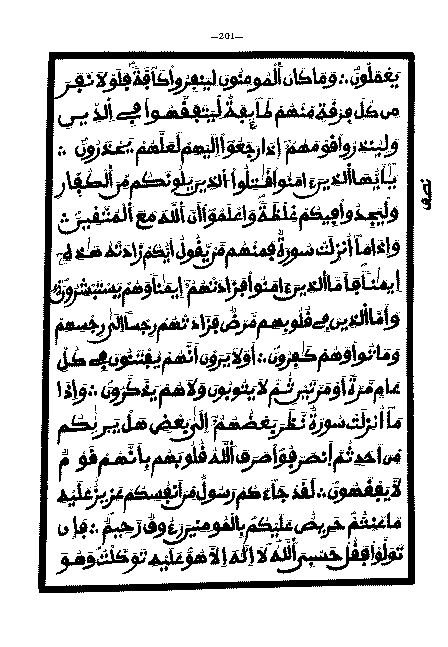 —201—
يَعْمَلُونَ ∴ وَمَا كَانَ ٱلْمُومِنُونَ لِيَنفِرُوا۟ كَآفَّةً فَلَوْلَا نَفَرَ
مِن كُلِّ فِرْقَةٍ مِّنْهُمْ طَآئِفَةٌ لِّيَتَفَقَّهُوا۟ فِے ٱلدِّينِ
وَلِيُنذِرُوا۟ قَوْمَهُمْ إِذَا رَجَعُوٓا۟ إِلَيْهِمْ لَعَلَّهُمْ يَحْذَرُونَ ∴
يَٰٓأَيُّهَا ٱلَّذِينَ ءَامَنُوا۟ قَٰتِلُوا۟ ٱلَّذِينَ يَلُونَكُم مِّنَ ٱلْكُفَّارِ
وَلْيَجِدُوا۟ فِيكُمْ غِلْظَةً وَٱعْلَمُوٓا۟ أَنَّ ٱللَّهَ مَعَ ٱلْمُتَّقِينَ ∴
وَإِذَا مَآ أُنزِلَتْ سُورَةٌ فَمِنْهُم مَّنْ يَّقُولُ أَيُّكُمْ زَادَتْهُ هَٰذِهِۦٓ
إِيمَٰنًا فَأَمَّا ٱلَّذِينَ ءَامَنُوا۟ فَزَادَتْهُمْ إِيمَٰنًا وَهُمْ يَسْتَبْشِرُونَ
وَأَمَّا ٱلَّذِينَ فِے قُلُوبِهِم مَّرَضٌ فَزَادَتْهُمْ رِجْسًا إِلَىٰ رِجْسِهِمْ
وَمَاتُوا۟ وَهُمْ كَٰفِرُونَ ∴ أَوَلَا يَرَوْنَ أَنَّهُمْ يُفْتَنُونَ فِے كُلِّ
عَامٍ مَّرَّةً أَوْ مَرَّتَيْنِ ثُمَّ لَا يَتُوبُونَ وَلَا هُمْ يَذَّكَّرُونَ ∴ وَإِذَا
مَآ أُنزِلَتْ سُورَةٌ نَّظَرَ بَعْضُهُمْ إِلَىٰ بَعْضٍ هَلْ يَرَىٰكُم
مِّنْ أَحَدٍ ثُمَّ ٱنصَرَفُوا۟ صَرَفَ ٱللَّهُ قُلُوبَهُم بِأَنَّهُمْ قَوْمٌ
لَّا يَفْقَهُونَ ∴ لَقَدْ جَآءَكُمْ رَسُولٌ مِّنْ أَنفُسِكُمْ عَزِيزٌ عَلَيْهِ
مَا عَنِتُّمْ حَرِيصٌ عَلَيْكُم بِٱلْمُومِنِينَ رَءُوفٌ رَّحِيمٌ ∴ فَإِن
تَوَلَّوْا۟ فَقُلْ حَسْبِىَ ٱللَّهُ لَآ إِلَٰهَ إِلَّا هُوَ عَلَيْهِ تَوَكَّلْتُ وَهُوَ
نصف